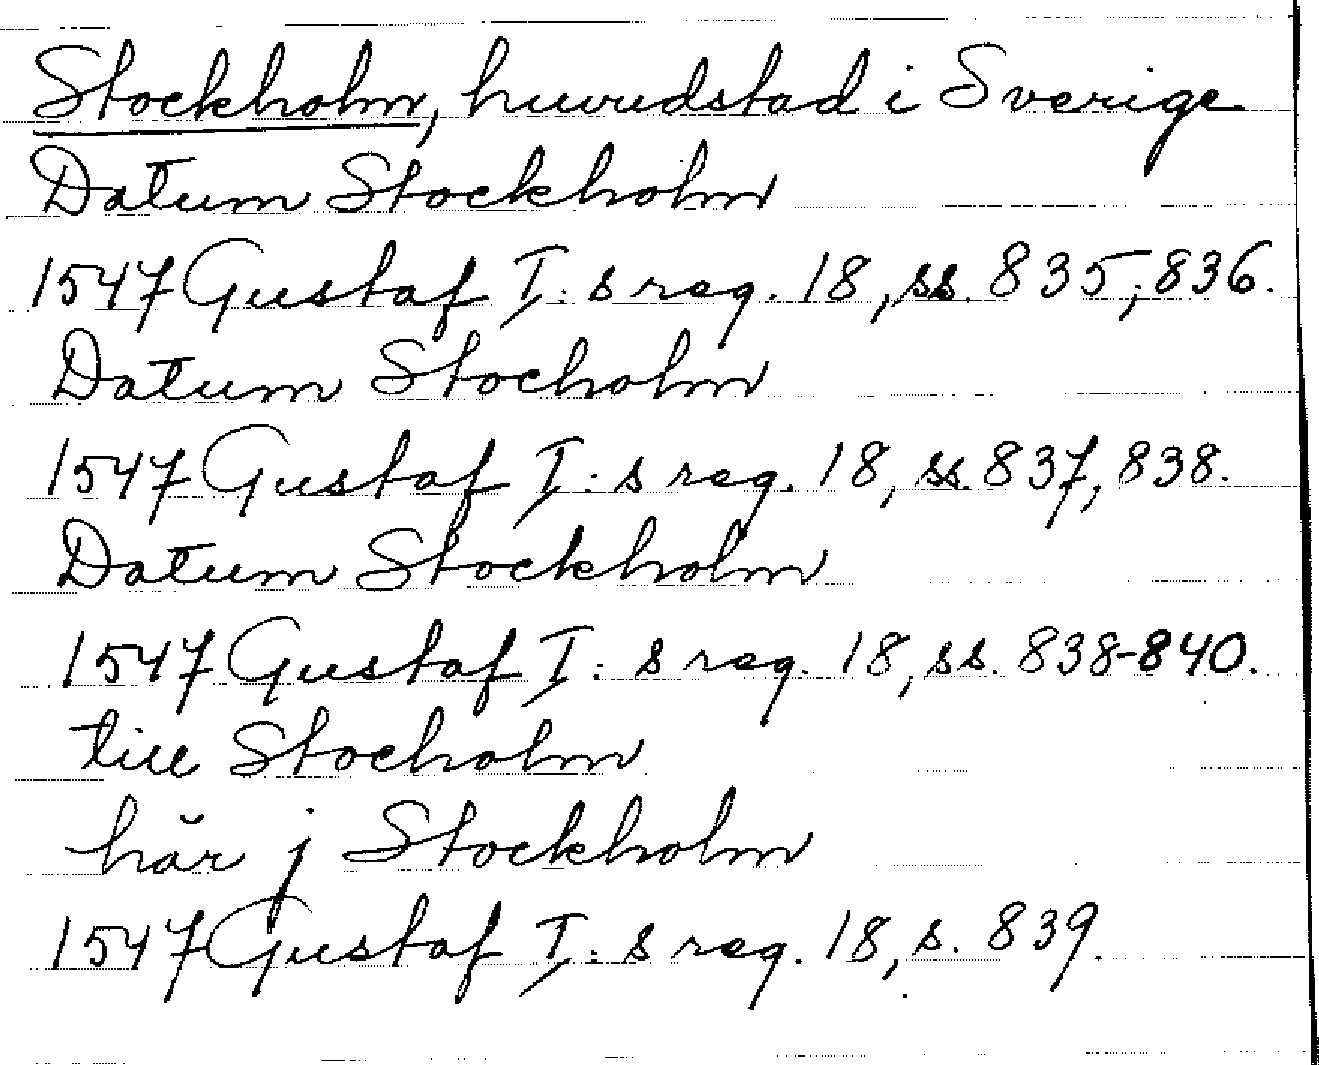 Stockholm, huvudstad i Sverige
Datum Stockholm
1547 Gustaf I:s reg. 18, ss. 835, 836.
Datum Stocholm
1547 Gustaf I:s reg. 18, ss. 837, 838.
Datum Stockholm
1547 Gustaf I:s reg. 18, ss. 838-840.
till Stocholm
här j Stockholm
1547 Gustaf I:s reg. 18, s. 839.